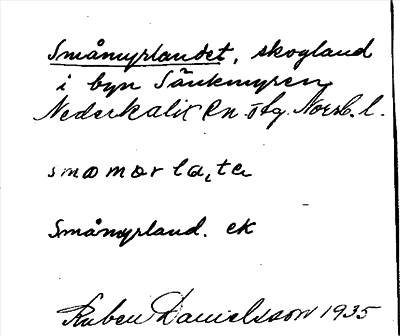 Småmyrlandet, skogland
i byn Sänkmyren
Nederkalix sn. ö lg. Norrb. l.
Småmyrland. ek
Ruben Danielsson 1935